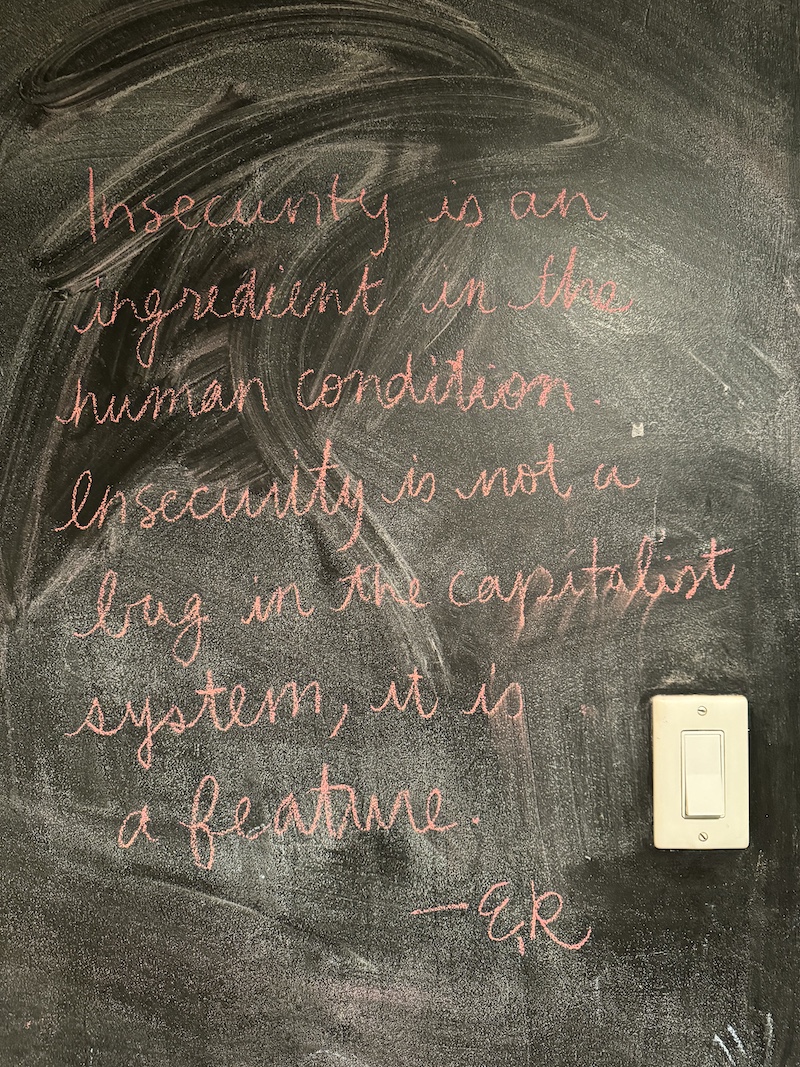 Insecurity is an
ingredient in the
human condition.
Insecurity is not a
bug in the capitalist
system, it is
a feature.
—ER